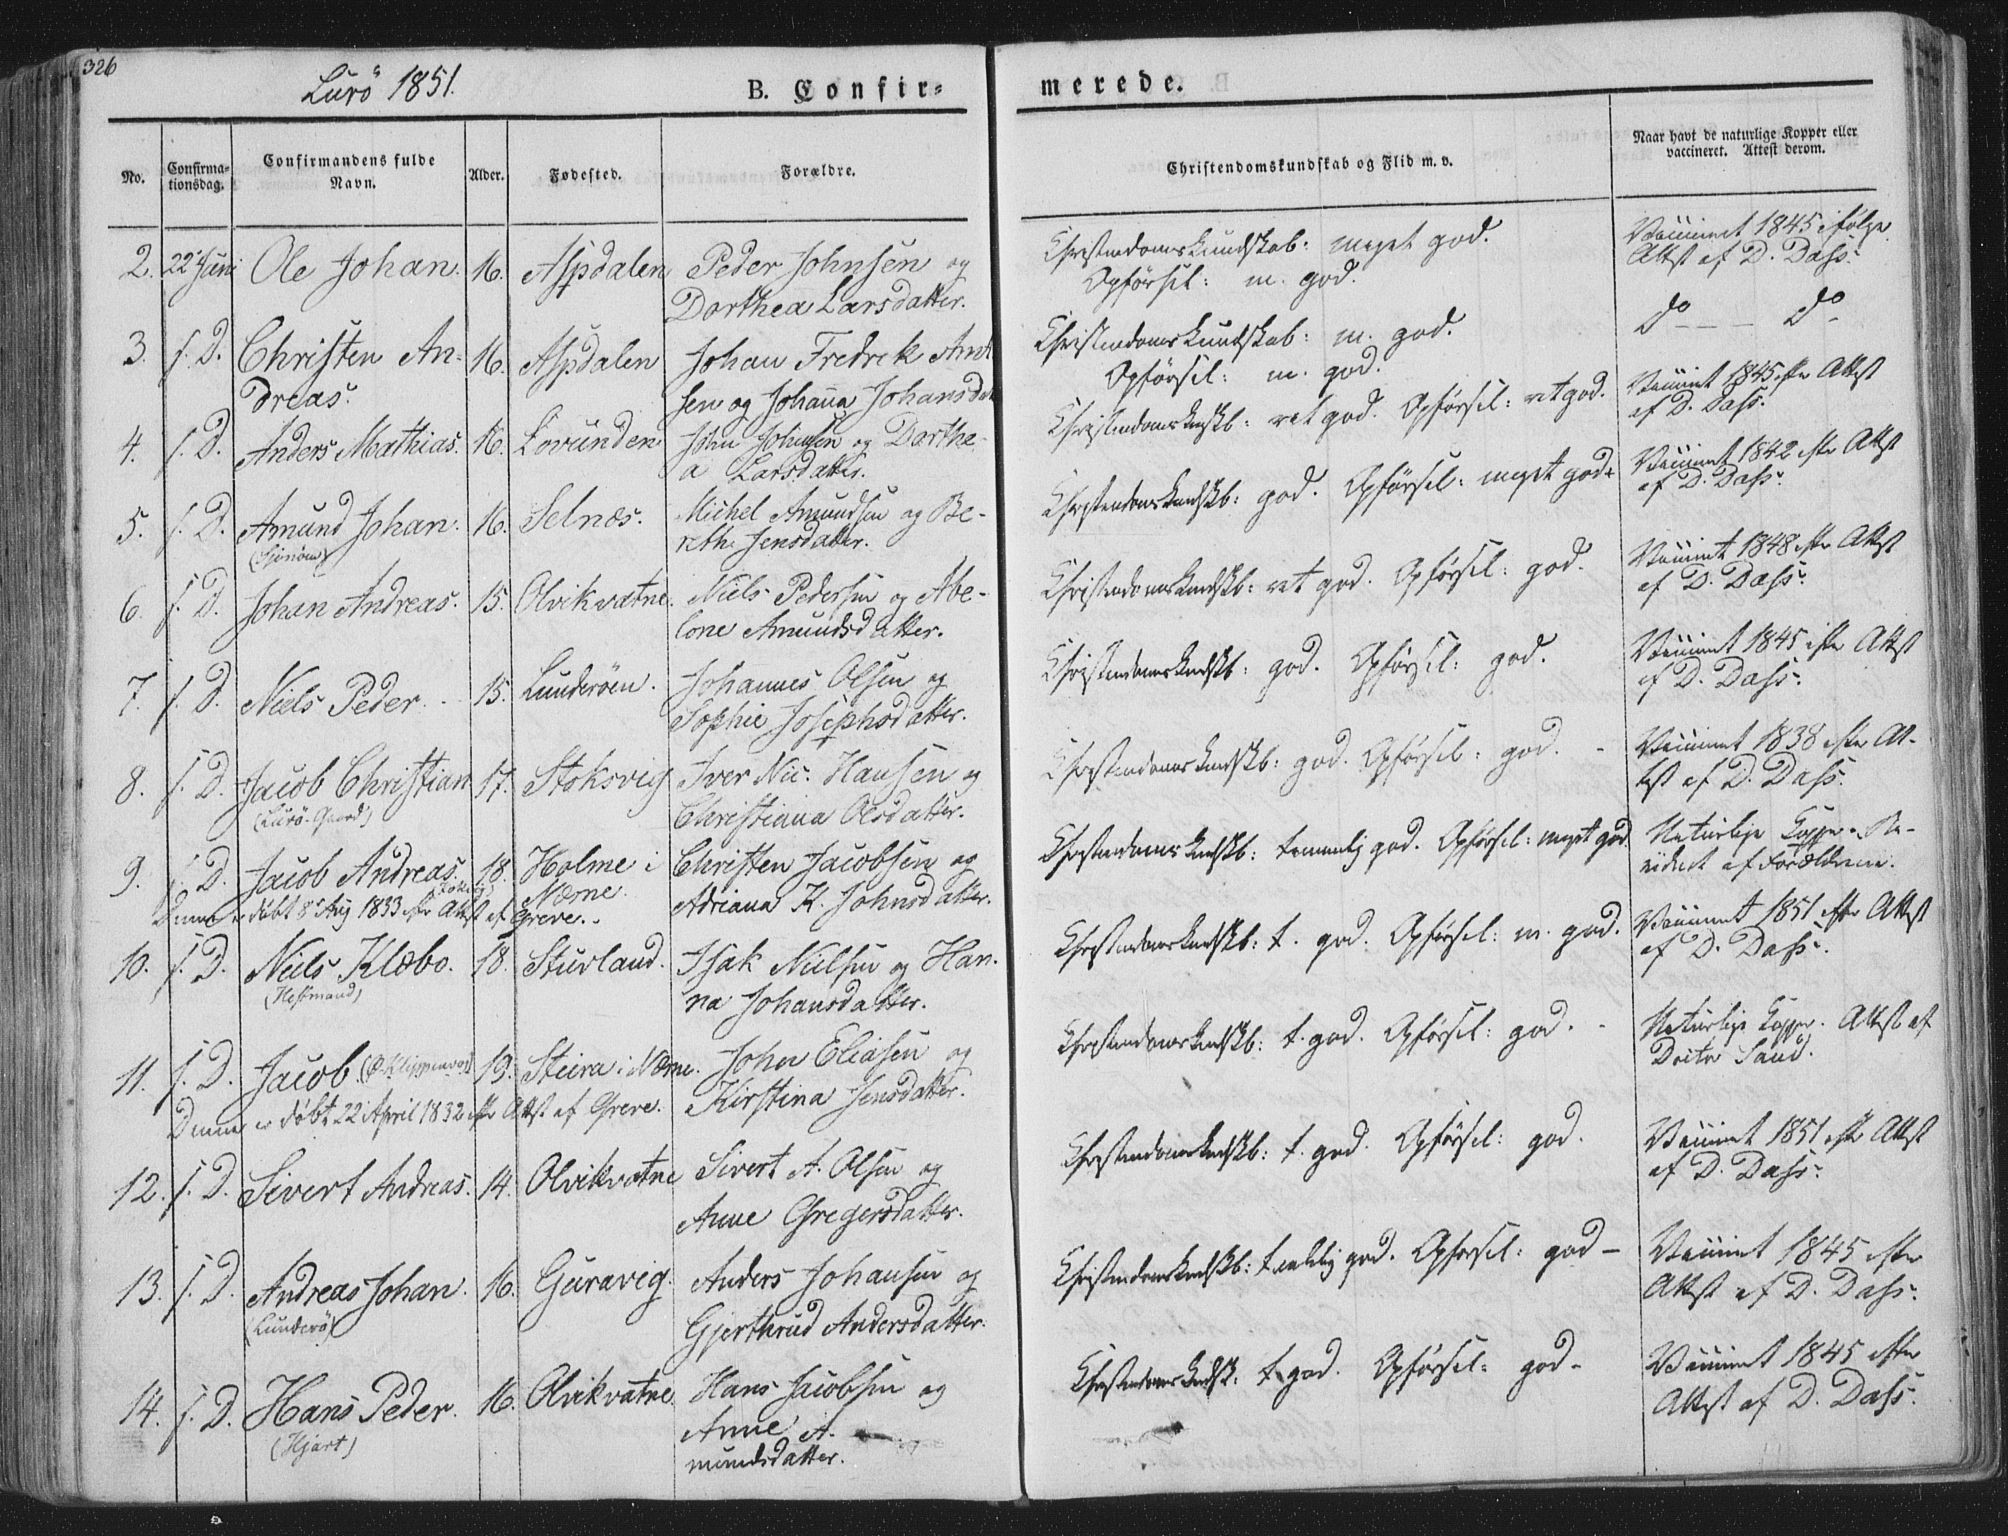 326
Lurö 1851.
B. Confir=
merede.
No.
Confirma-
tionsdag.
Confirmandens fulde
Navn.
Alder.
Fødested.
Forældre.
Christendomskundskab og Flid m. v.
Naar havt de naturlige Kopper eller
vaccineret. Attest derom.
2. 22 Juni Ole Johan. 16. Aspdalen Peder Johnsen og
Dorthea Larsdatter.
Christendomskundskab: meget god.
Opførsel: m. god.
Vaccineret 1845 ifølge
Attst af D. Dass.
3. s. D. Christen An-
dreas.
16. Aspdalen Johan Fredrek Arnt
sen og Johana Johansdat
Christendomskundskab: m. god.
Opførsel: m. god.
do - - - do
4. s. D. Anders Mathias. 16. Lovunden John Johnsen og Dorthe-
a Larsdatter.
Christendomskndskb: ret god. Opførsel: ret god.
Vaccinet 1845 efter Attst
af D. Dass.
5. s. D. Amund Johan. 16. Selnæs. Michel Amundsen og Be-
reth Jensdatter.
Christendomskndskb: god. Opførsel: meget god.
Vaccinet 1842 efter Attst
af D. Dass.
6. s. D. Johan Andreas. 15. Olvikvatne. Niels Pedersen og Abe-
lone Amundsdatter.
Christendomskndskb: ret god. Opførsel: god.
Vaccinet 1848 efter Attst
af D. Dass.
7. s. D. Niels Peder. 15. Lunderöen. Johannes Olsen og
Sophie Josephsdatter.
Christendomskndskb: god. Opførsel: god.
Vaccinet 1845 efter Attst
af D. Dass.
8. s. D. Jacob Christian 17. Stoksvig Iver Nic. Hansen og
(Lurö-Gaard) Christiana Olsdatter.
Christendomskndskb: god. Opførsel: god. -
Vaccinet 1838 efter At-
test af D. Dass.
9. s. D. Jacob Andreas. 18. Holme i
Næsne.
Christen Jacobsen og
Adriana K. Johnsdatter.
Denne er döbt 8 Aug 1833 efter Attst af Greve.
Christendomskndskb: temmelig god. Opførsel: meget god
Naturlige Kopper.
af Forældrene.
10. s. D. Niels Klæbo. 18. Sturland. Isak Nielsen og Han-
(Hestmand) na Johansdatter.
Christendomskndskb: t. god. Opførsel: m. god.
Vaccinet 1851 efter Attst
af D. Dass.
11. s. D. Jacob 19. Steira i Næsne. John Eliasen og
Kirstina Jensdatter.
Denne er döbt 22 April 1832 efter Attst af Greve.
Christendomskndskb: t. god. Opførsel: god. -
Naturlige Kopper. Attst af
Sand.
12. s. D. Sivert Andreas. 14. Olvikvatne Sivert A. Olsen og
Anne Gregersdatter.
Christendomskndskb: t. god. Opførsel: god.
Vaccinet 1851 efter Attst
af D. Dass.
13. s. D. Andreas Johan. 16. Guravig. Anders Johansen og
(Lunderö) Gjerthrud Andersdatter.
Christendomskndskb: god. Opførsel: god -
Vaccinet 1845 efter
Attst af D. Dass.
14. s. D. Hans Peder. 16. Olvikvatne. Hans Jacobsen og
(Hjart) Anne A-
mundsdatter.
Christendomskndsk: t. god. Opførsel: god -
Vaccinet 1845 efter
Attst af D. Dass.